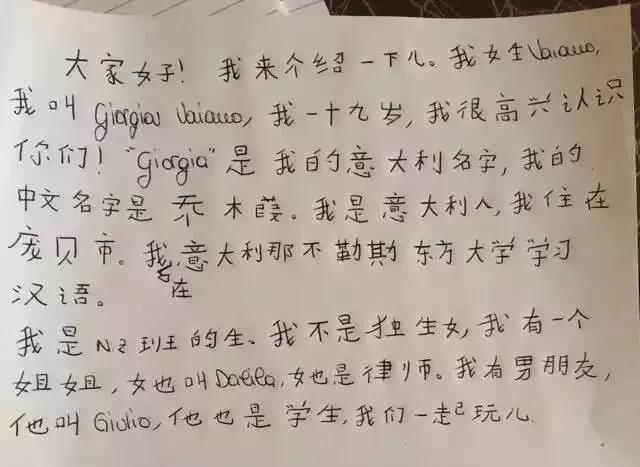 大家好！我来介绍一下儿。我女生Vaiano,
我叫 Giorgia Vaiano, 我一十九岁, 我很高兴认识
你们！"Giorgia"是 我的意大利名字, 我的
中文名字是 乔 木葭。我是意大利人, 我住在
庞贝市。我意大利那不勒斯 东方大学学习
在
汉语。
我是 N.2 班的生。我不是独生女, 我有一个
姐姐, 她叫Dalila, 她是律师。我有男朋友,
他叫 Giulio, 他也是 学生, 我们一起玩儿